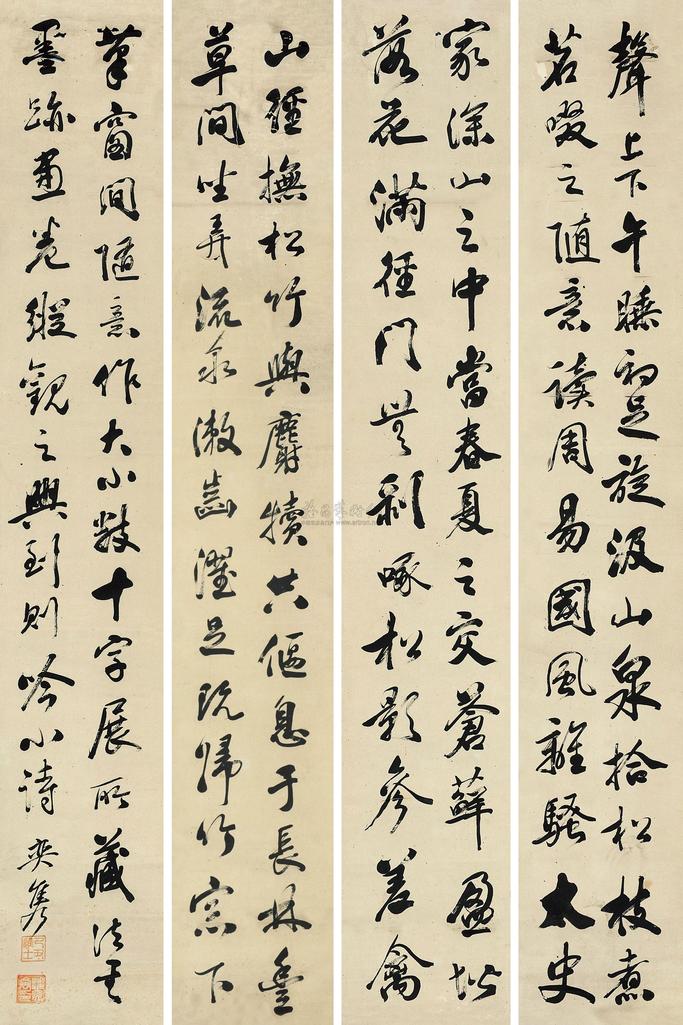 聲上下午睡初足旋汲山泉拾松枝煮
茗啜之隨意讀周易國風離騷太史
家深山之中當春夏之交蒼蘚盈堦
落花滿徑門無剝啄松影參差禽
山徑撫松竹與麝犢共偃息于長林豐
草間坐弄流泉漱齒濯足既歸竹窗下
筆窗間隨意作大小數十字展所藏法書
墨跡畫卷縱觀之興到則吟小詩
奕雋